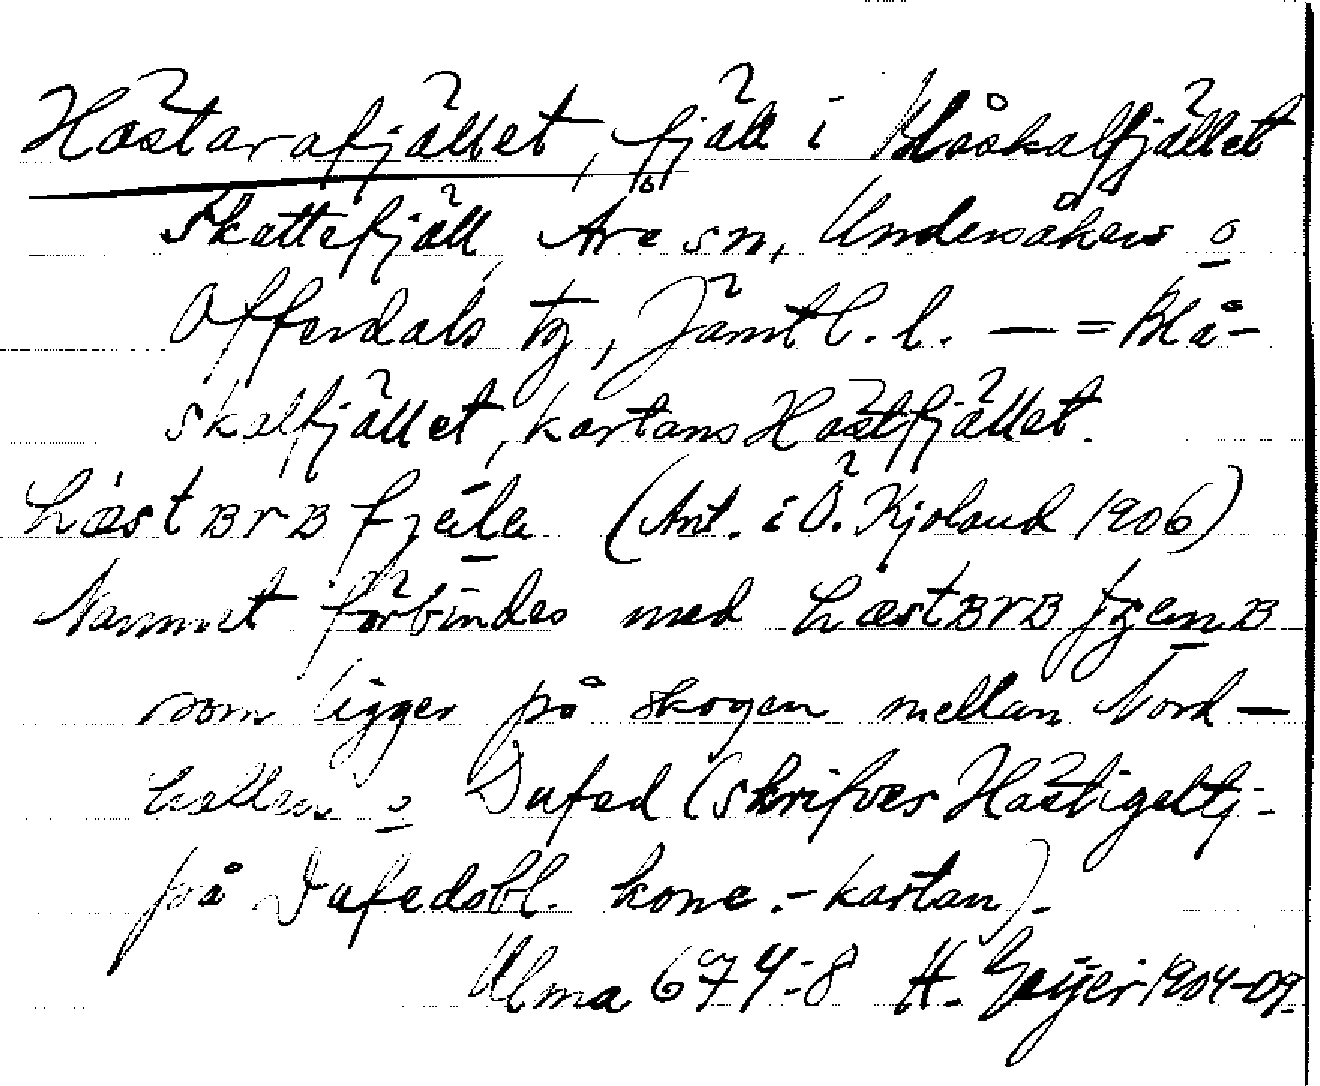 Hästarafjället, fjäll i Blåskalfjället
Skattefjäll, Åre sn, Undersåkers o
Offerdals tg, Jämtl. l. — = Blå-
skalfjället, kartans Hästfjället.
hæstʙrʙfjéla (Ant. i Ö. Kjoland 1906)
Namnet förbindes med hæstʙrʙ
som ligger på skogen mellan Nord-
hallen o Dufed (skrifves Hästigeltj-
på Dufedsbl. konc.-kartan).
Ulma 674:8 H. Geijer 1904-09